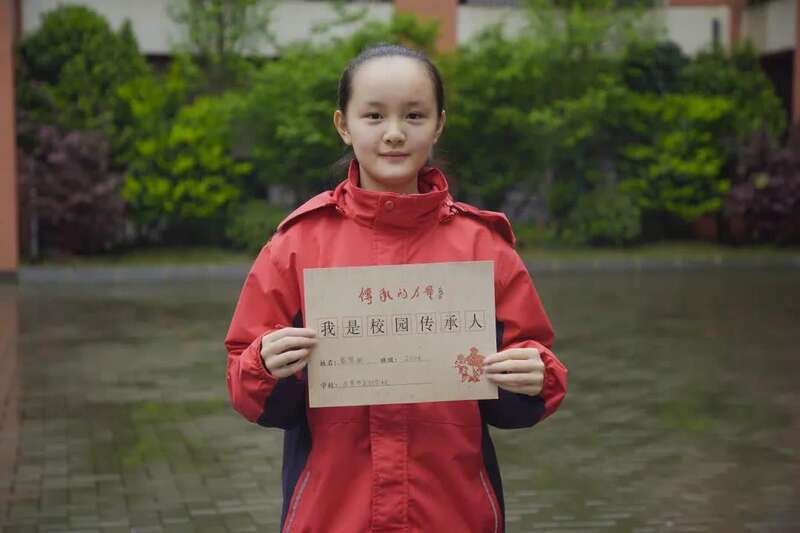 傳承的力量
我是校园传承人
姓名: 班级:
学校: